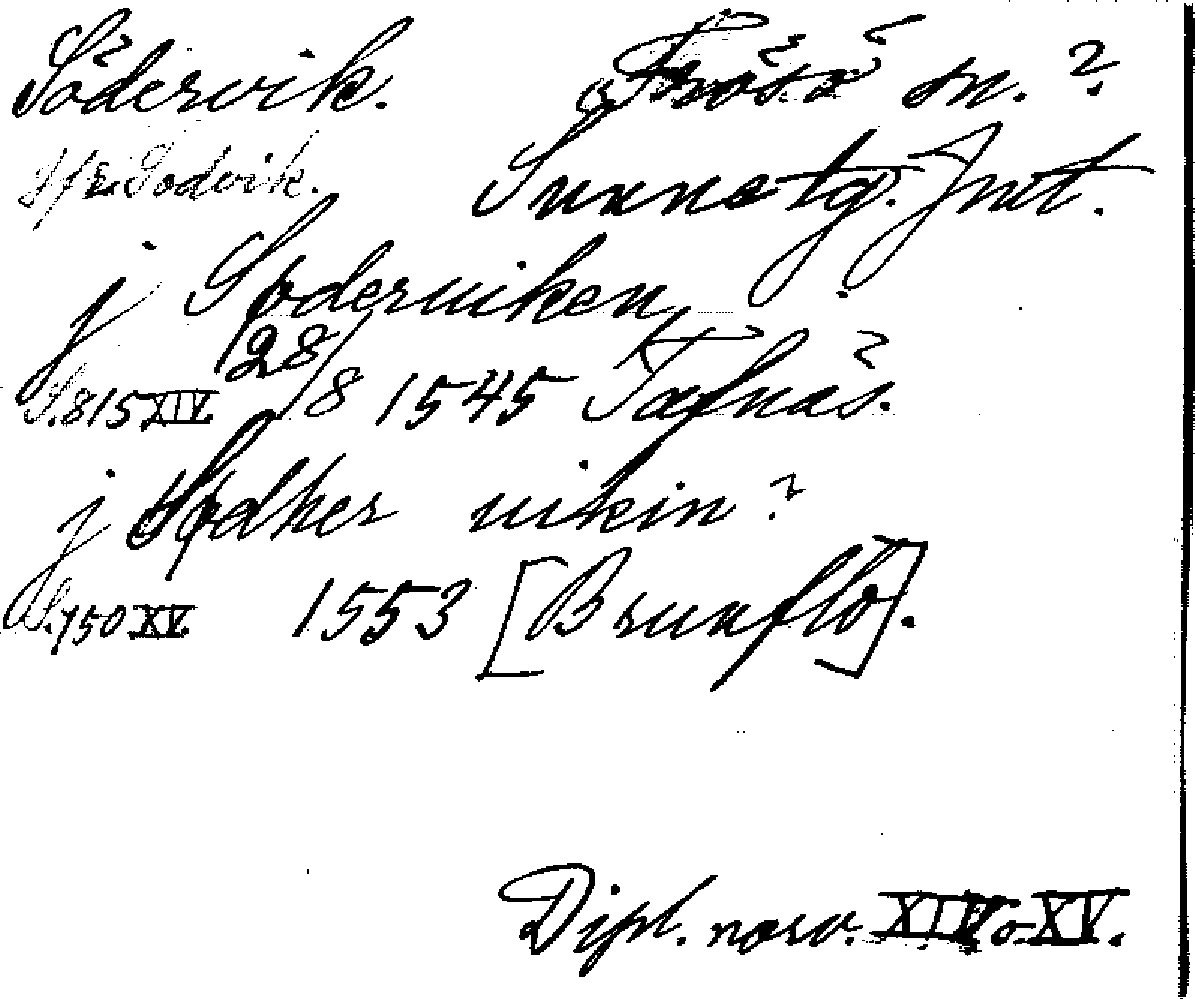 Södervik. Frösö sn.?
Jfr Sodvik. Sunne tg. Jmt.
j Søderuiken
S. 815 XIV. 28/8 1545 Tafnäs.
j Sødher uikin?
S. 750 XV. 1553 [Brunflo].
Dipl. norv. XIV o. XV.